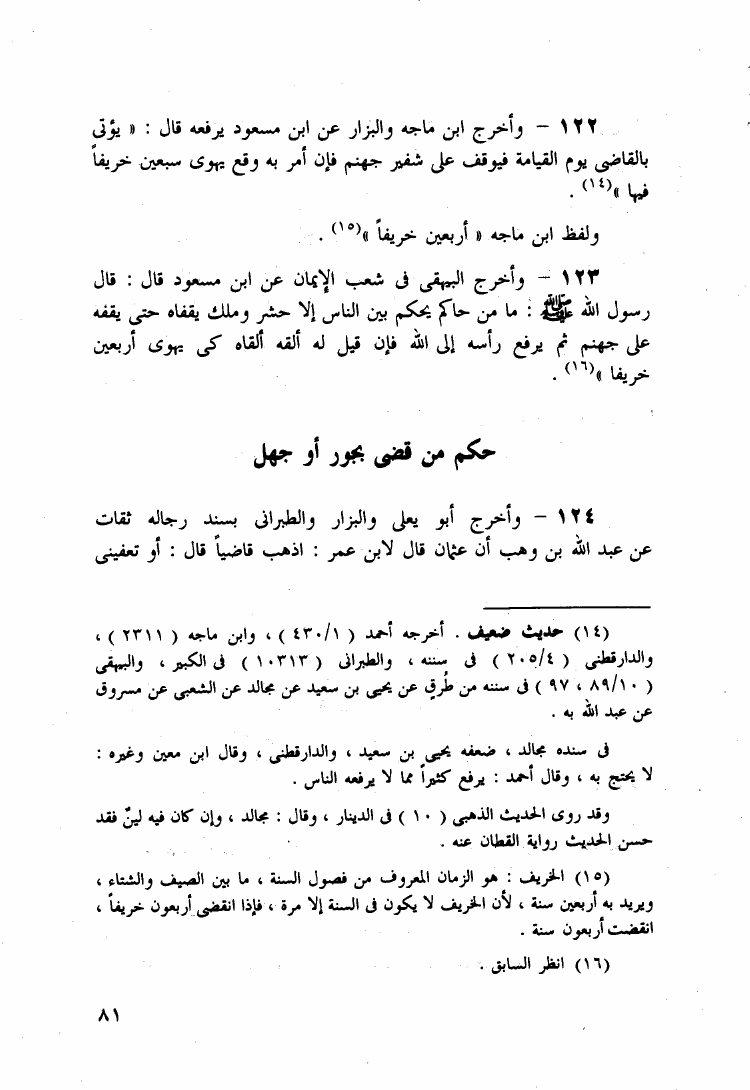 ١٢٢ – وأخرج ابن ماجه والبزار عن ابن مسعود يرفعه قال : « يؤتى
بالقاضى يوم القيامة فيوقف على شفير جهنم فإن أمر به وقع يهوى سبعين خريفاً
فيها »(١٤) .
ولفظ ابن ماجه « أربعين خريفاً »(١٥) .
١٢٣ – وأخرج البيهقى فى شعب الإيمان عن ابن مسعود قال : قال
رسول الله ﷺ : ما من حاكم يحكم بين الناس إلا حشر وملك يقفاه حتى يقفه
على جهنم ثم يرفع رأسه إلى الله فإن قيل له ألقه ألقاه كى يهوى أربعين
خريفا »(١٦) .
حكم من قضى بجور أو جهل
١٢٤ – وأخرج أبو يعلى والبزار والطبرانى بسند رجاله ثقات
عن عبد الله بن وهب أن عثمان قال لابن عمر : اذهب قاضياً قال : أو تعفينى
(١٤) حديث ضعيف . أخرجه أحمد ( ٤٣٠/١ ) ، وابن ماجه ( ٢٣١١ ) ،
والدارقطنى ( ٢٠٥/٤ ) فى سننه ، والطبرانى ( ١٠٣١٣ ) فى الكبير ، والبيهقى
( ٨٩/١٠ ، ٩٧ ) فى سننه من طُرقٍ عن يحيى بن سعيد عن مجالد عن الشعبى عن مسروق
عن عبد الله به .
فى سنده مجالد ، ضعفه يحيى بن سعيد ، والدارقطنى ، وقال ابن معين وغيره :
لا يحتج به ، وقال أحمد : يرفع كثيراً مما لا يرفعه الناس .
وقد روى الحديث الذهبى ( ١٠ ) فى الدينار ، وقال : مجالد ، وإن كان فيه لينٌ فقد
حسن الحديث رواية القطان عنه .
(١٥) الخريف : هو الزمان المعروف من فصول السنة ، ما بين الصيف والشتاء ،
ويريد به أربعين سنة ، لأن الخريف لا يكون فى السنة إلا مرة ، فإذا انقضى أربعون خريفاً ،
انقضت أربعون سنة .
(١٦) انظر السابق .
٨١